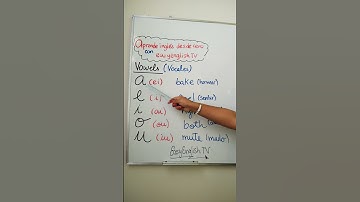 Aprende inglés desde cero
con
easyenglish TV
Vowels (Vocales)
a (ei) bake (hornear)
e (i)
i (ai)
o (ou) both
u (iu) mute (mudo)
EasyEnglish TV